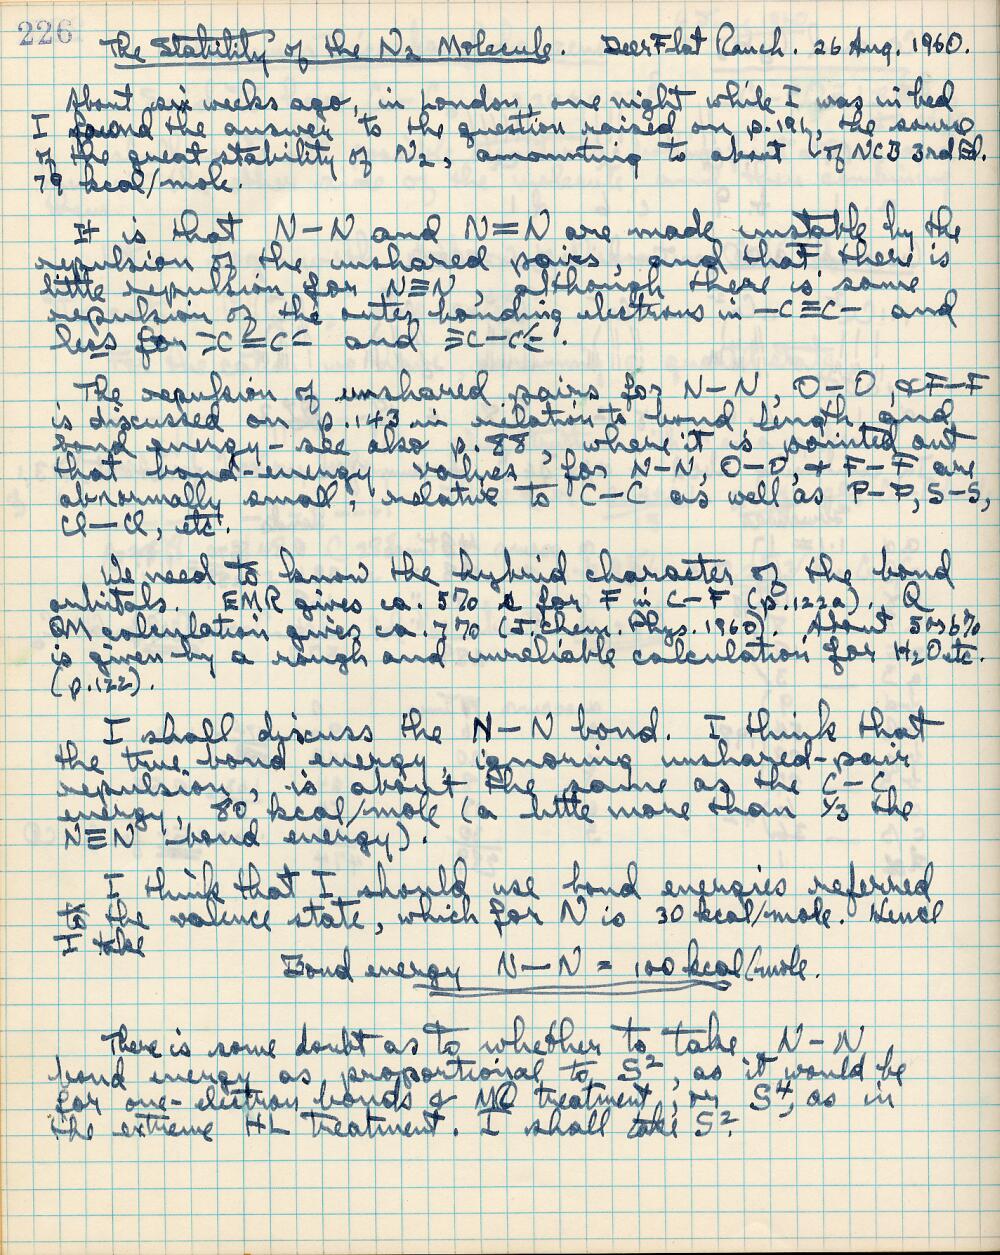 226
The Stability of the N2 Molecule. Deer Flat Ranch. 26 Aug. 1960.
About six weeks ago, in London, one night while I was in bed
I found the answer to the question raised on p. 191, the source
of the great stability of N2, amounting to about of NCB 3rd Ed.
79 kcal/mole.
It is that N–N and N=N are made unstable by the
repulsion of the unshared pairs, and that there is
little repulsion for N≡N, although there is some
repulsion of the outer bonding electrons in –C≡C– and
less for >C=C< and ≡C–C≡.
The repulsion of unshared pairs for N–N, O–O, & F–F
is discussed on p. 143 in relation to bond length and
bond energy – see also p. 88, where it is pointed out
that bond-energy values for N–N, O–O, + F–F are
abnormally small, relative to C–C as well as P–P, S–S,
Cl–Cl, etc.
We need to know the hybrid character of the bond
orbitals. EMR gives ca. 5% s for F in C–F (p. 122a). Q
QM calculation gives ca. 7% (J. Chem. Phys. 1960). About 5 or 6%
is given by a rough and unreliable calculation for H2O etc.
(p. 122).
I shall discuss the N–N bond. I think that
the true bond energy, ignoring unshared-pair
repulsion, is about the same as the C–C
energy, 80 kcal/mole (a little more than 1/3 the
N≡N bond energy).
I think that I should use bond energies referred
to the valence state, which for N is 30 kcal/mole. Hence
I take
Bond energy N–N = 100 kcal/mole.
There is some doubt as to whether to take N–N
bond energy as proportional to S², as it would be
for one-electron bonds & MO treatment, or S⁴, as in
the extreme HL treatment. I shall take S².